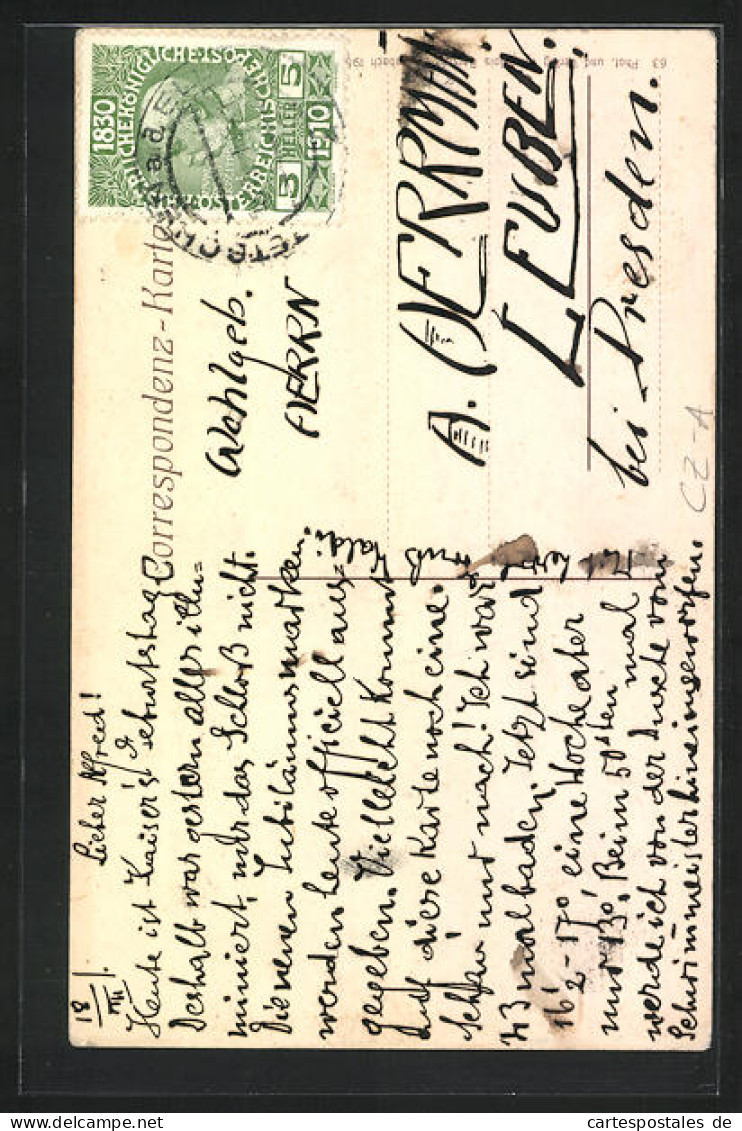 Correspondenz-Karte
1830
5 HELLER 5
1910
TETSCHEN a. d. E
Wohlgeb.
HERRN
A. HERRMAN.
LEUBEN.
bei Dresden.
CZ-A
18/VIII.
Lieber Alfred!
Heute ist Kaiser's Geburtstag
Deshalb war gestern alles illu=
miniert, nur das Schloß nicht.
Die neuen Jubiläumsmarken
werden heute officiell aus=
gegeben. Vielleicht kommt
auf diese Karte noch eine.
Schau mir nach! Ich war
43 mal baden. Jetzt sind
16½-17°, eine Woche
nur 13°. Beim 50sten mal
werde ich von der Duxte vom
Schwimmeister hineingeworfen.
cartespostales de